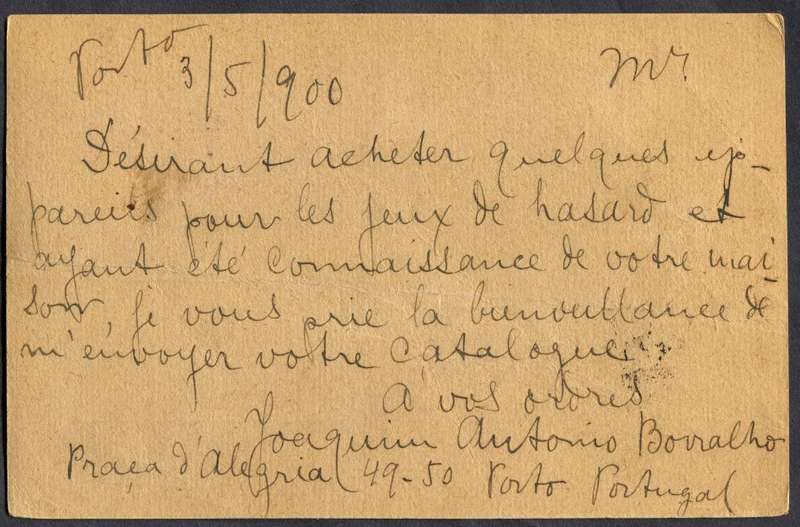 Porto 3/5/900 Mr.
Désirant acheter quelques ap-
pareils pour les jeux de hasard et
ayant été connaissance de votre mai-
son, je vous prie la bienveillance de
m'envoyer votre catalogue.
A vos ordres
Joaquim Antonio Borralho
Praça d'Alegria 49-50 Porto Portugal